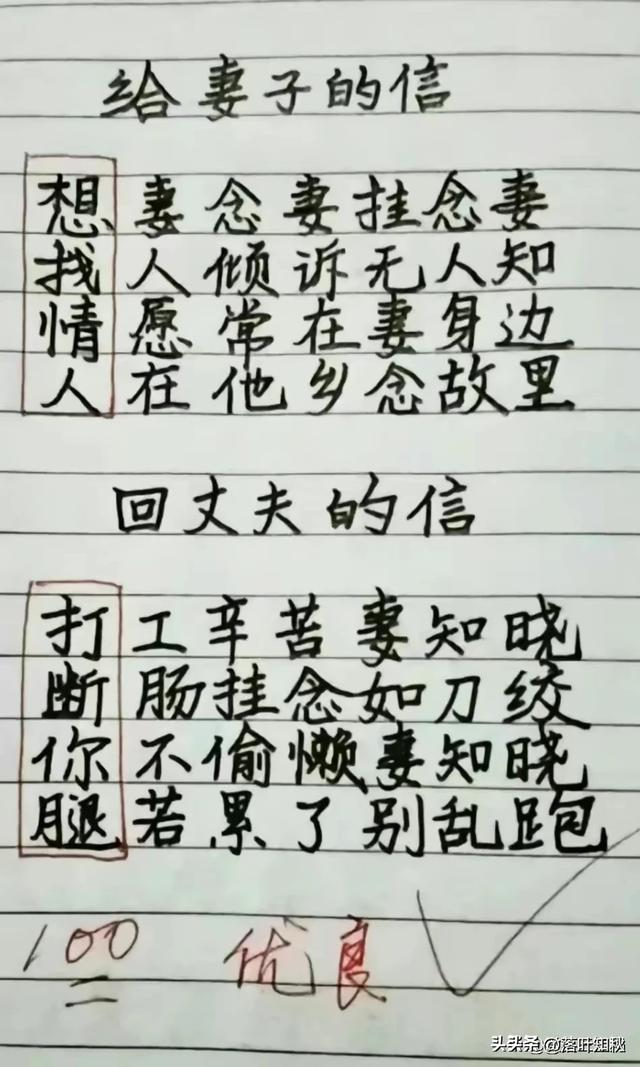 给妻子的信
想妻念妻挂念妻
找人倾诉无人知
情愿常在妻身边
人在他乡念故里
回丈夫的信
打工辛苦妻知晓
断肠挂念如刀绞
你不偷懒妻知晓
腿若累了别乱跑
100 优良
头条 @落叶知秋